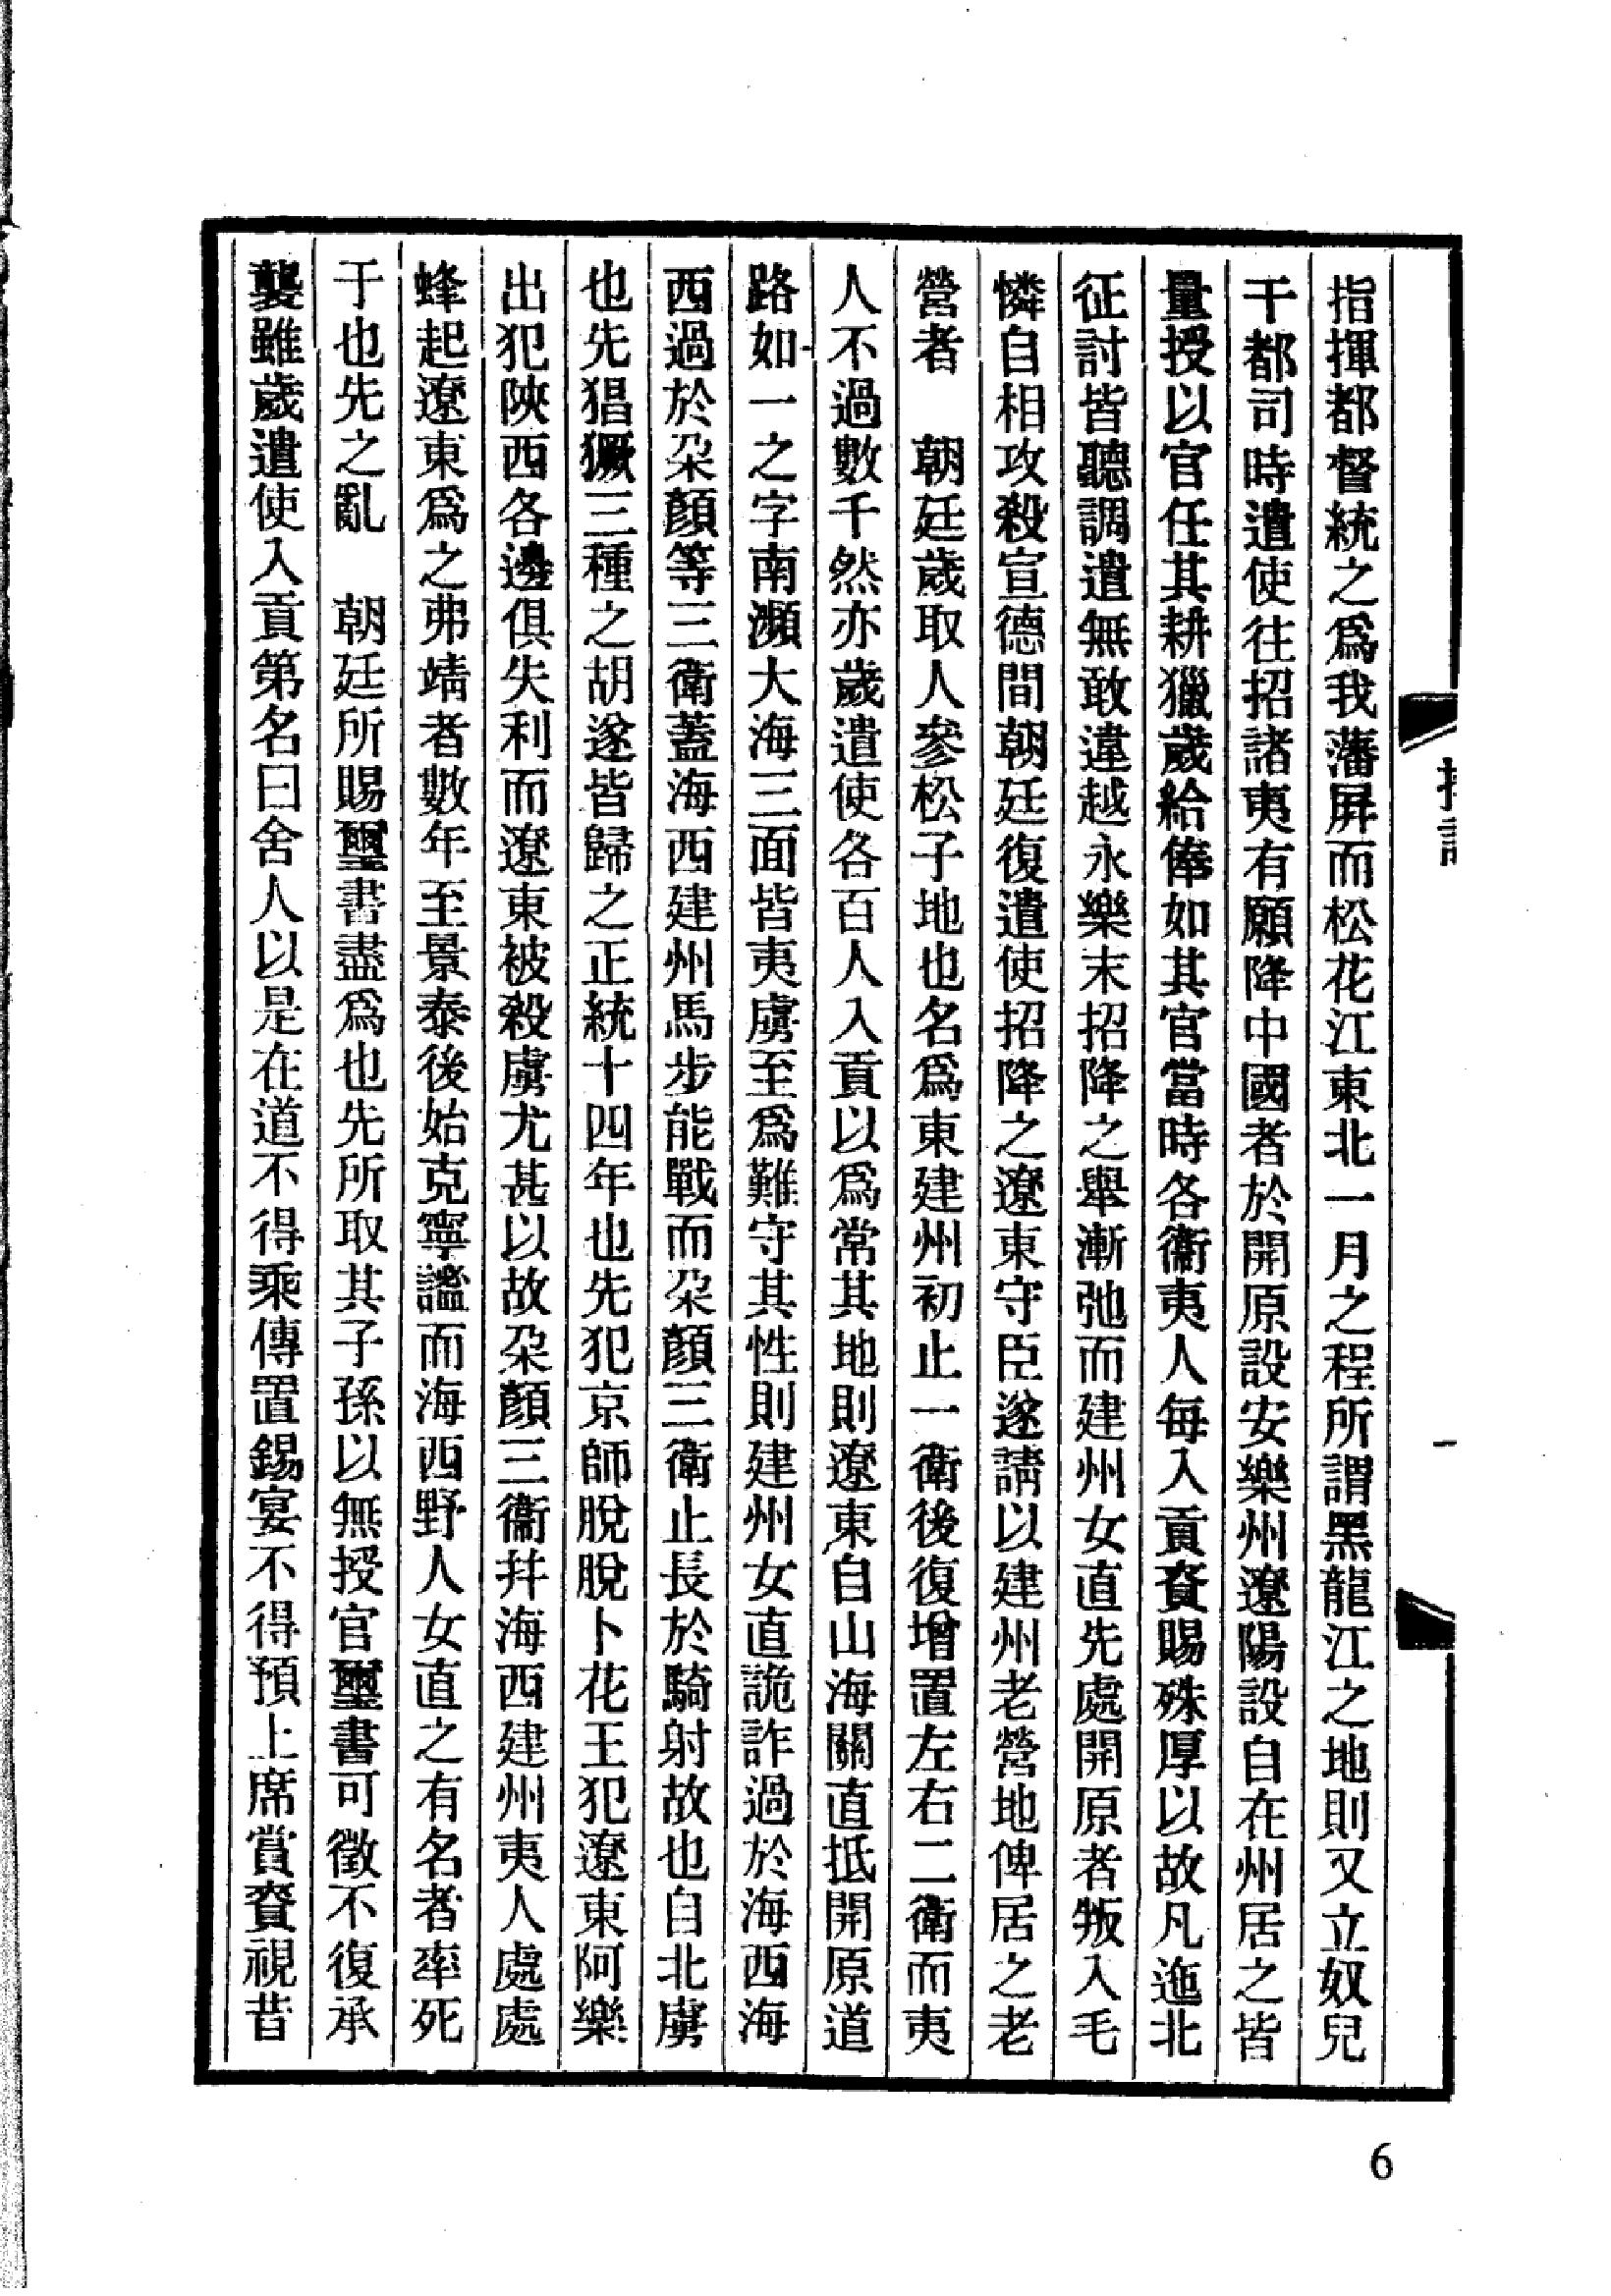 指揮都督統之爲我藩屏而松花江東北一月之程所謂黑龍江之地則又立奴兒
干都司時遣使往招諸夷有願降中國者於開原設安樂州遼陽設自在州居之皆
量授以官任其耕獵歲給俸如其官當時各衞夷人每入貢賚賜殊厚以故凡迤北
征討皆聽調遣無敢違越永樂末招降之舉漸弛而建州女直先處開原者叛入毛
憐自相攻殺宣德間朝廷復遣使招降之遼東守臣遂請以建州老營地俾居之老
營者　朝廷歲取人參松子地也名爲東建州初止一衞後復增置左右二衞而夷
人不過數千然亦歲遣使各百人入貢以爲常其地則遼東自山海關直抵開原道
路如一之字南瀕大海三面皆夷虜至爲難守其性則建州女直詭詐過於海西海
西過於朶顏等三衞蓋海西建州馬步能戰而朶顏三衞止長於騎射故也自北虜
也先猖獗三種之胡遂皆歸之正統十四年也先犯京師脫脫卜花王犯遼東阿樂
出犯陜西各邊俱失利而遼東被殺虜尤甚以故朶顏三衞幷海西建州夷人處處
蜂起遼東爲之弗靖者數年至景泰後始克寧謐而海西野人女直之有名者率死
于也先之亂　朝廷所賜璽書盡爲也先所取其子孫以無授官璽書可徵不復承
襲雖歲遣使入貢第名曰舍人以是在道不得乘傳置錫宴不得預上席賞賚視昔
一
6